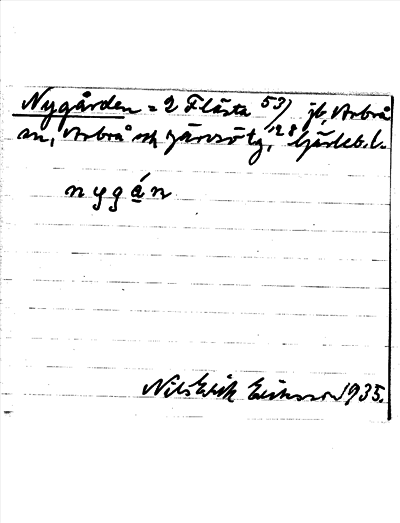 Nygården = 2 Flästa 53/128 jb, Arbrå
sn, Arbrå och Järvsö tg, Gävleb. l.
nygá̱n
Nils Erik Eriksson 1935.